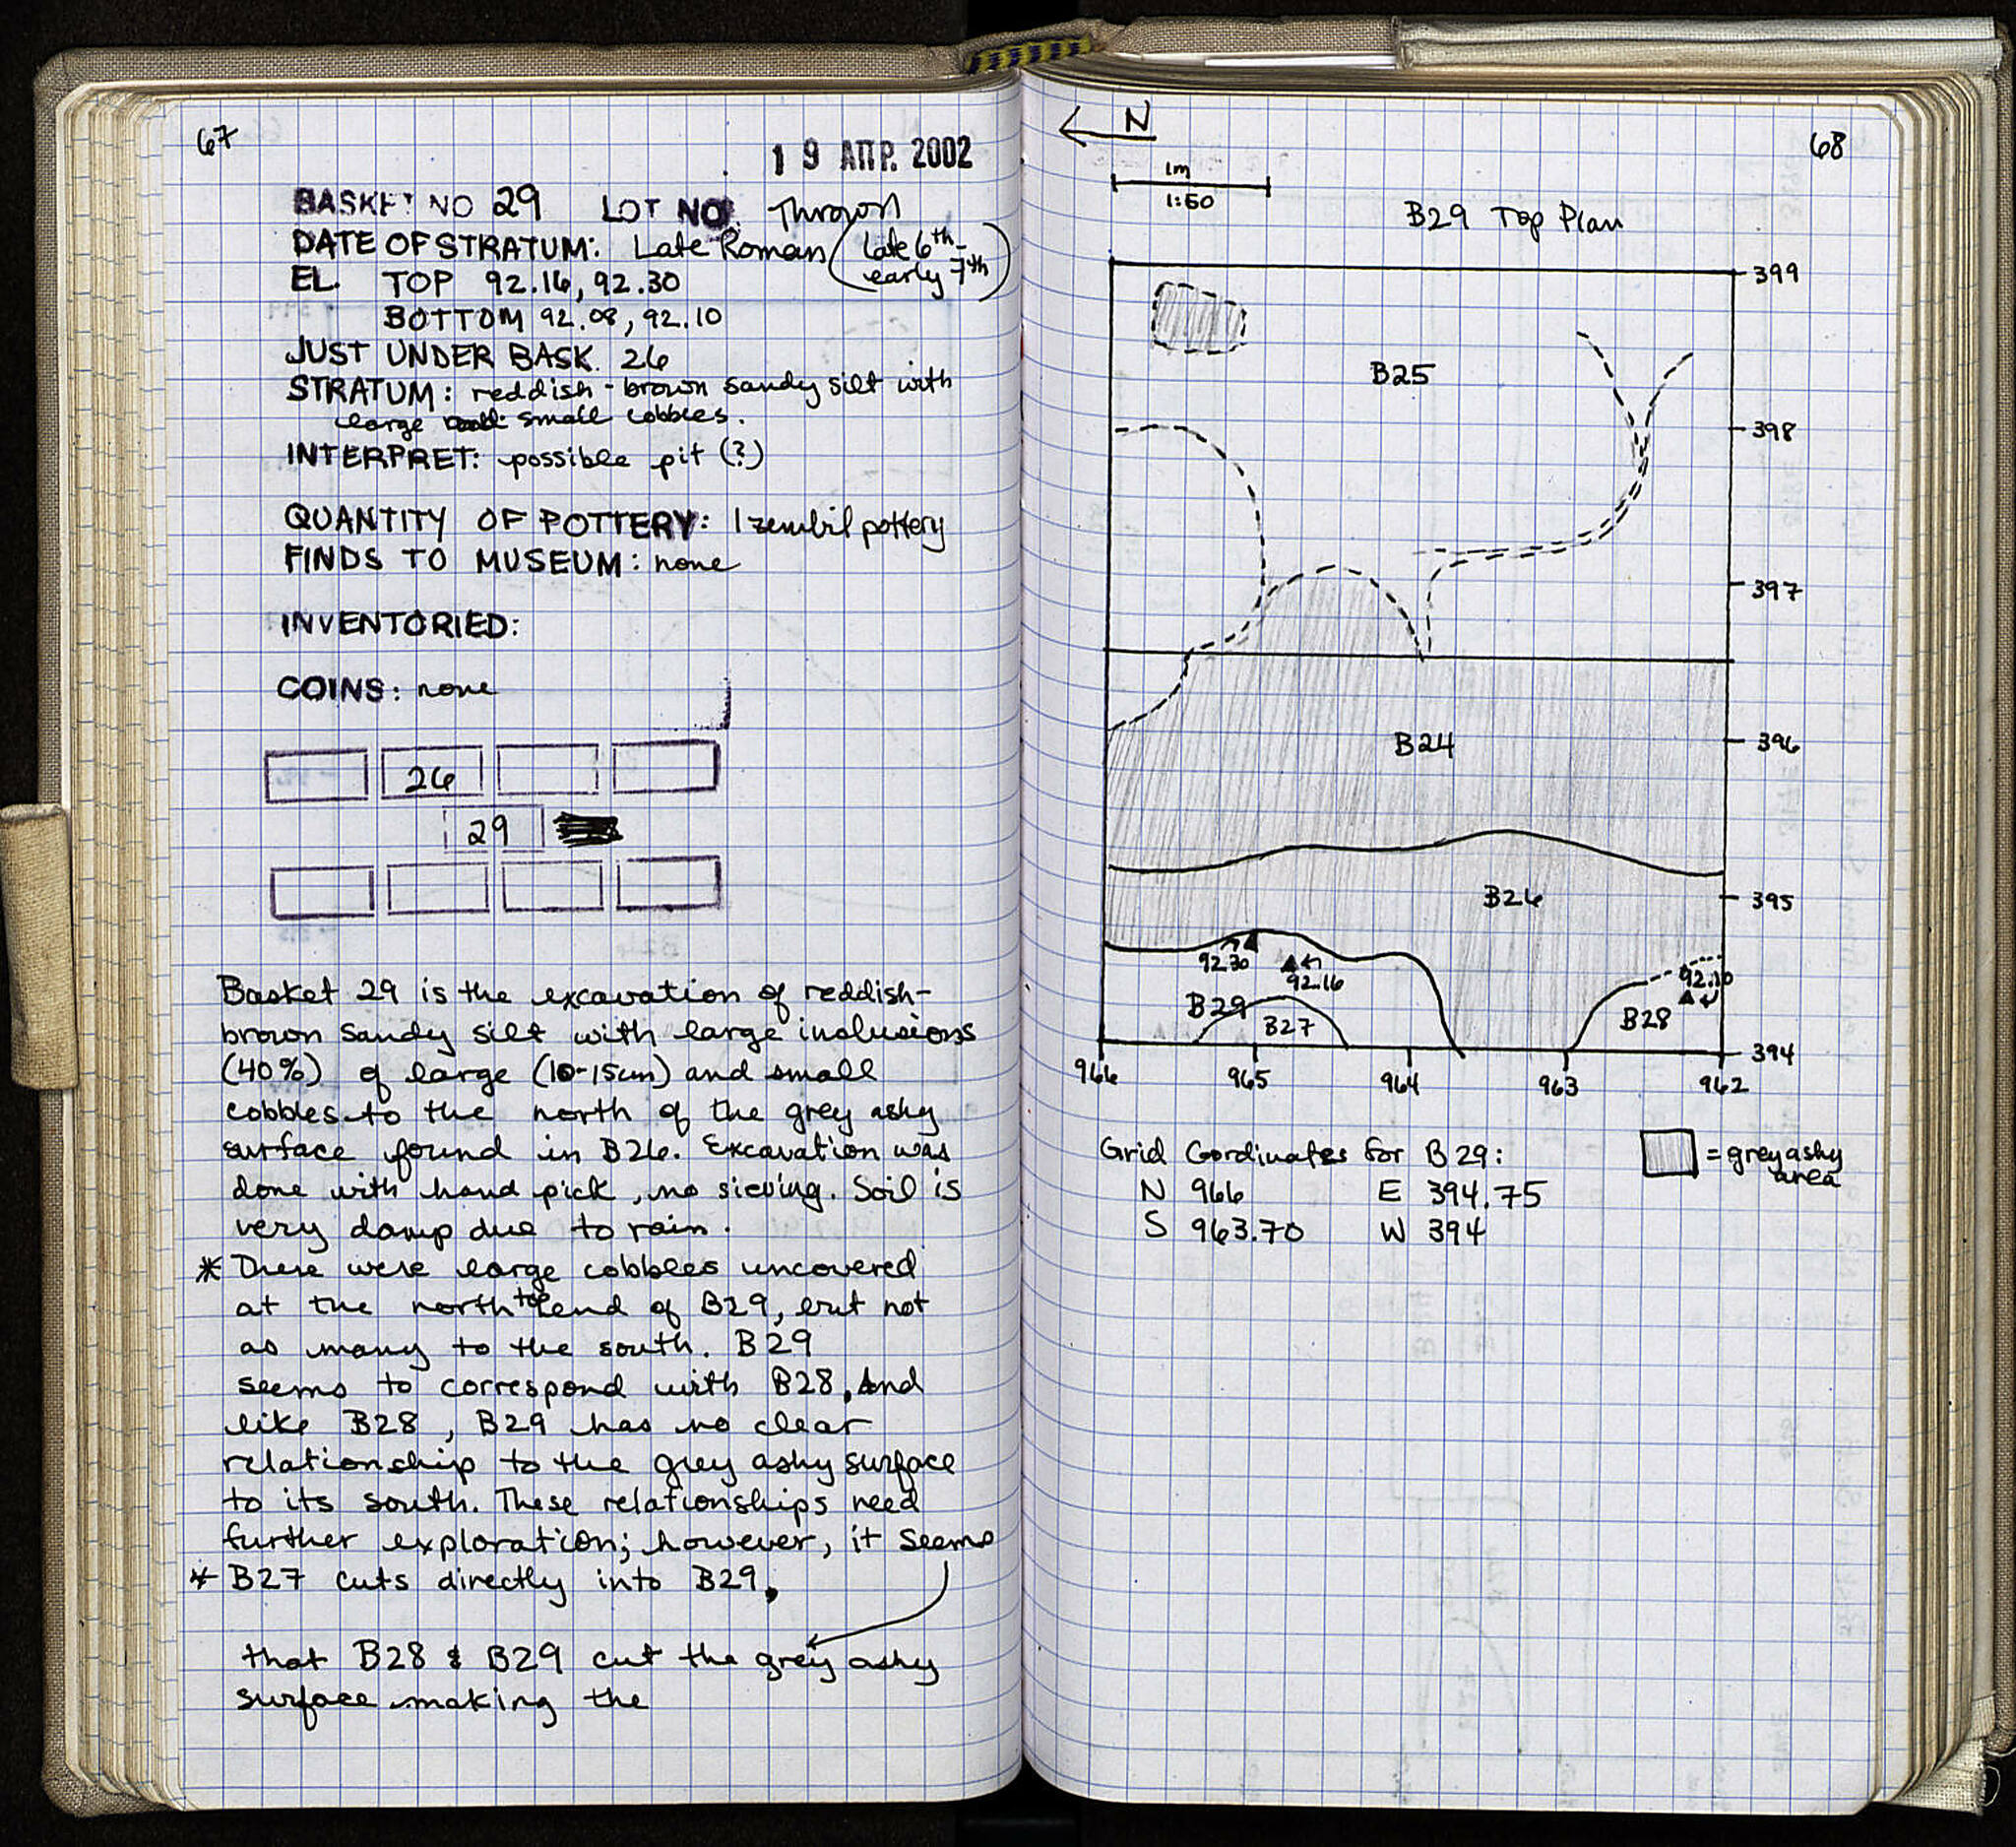 67
19 ΑΠΡ. 2002
BASKET NO 29 LOT NO. Thrown
DATE OF STRATUM: Late Roman (late 6th-
early 7th)
EL. TOP 92.16, 92.30
BOTTOM 92.08, 92.10
JUST UNDER BASK. 26
STRATUM: reddish-brown sandy silt with
large small cobbles.
INTERPRET: possible pit (?)
QUANTITY OF POTTERY: 1 zembil pottery
FINDS TO MUSEUM: none
INVENTORIED:
COINS: none
26
29
Basket 29 is the excavation of reddish-
brown sandy silt with large inclusions
(40%) of large (10-15cm) and small
cobbles to the north of the grey ashy
surface found in B26. Excavation was
done with hand pick, no sieving. Soil is
very damp due to rain.
* There were large cobbles uncovered
at the north end of B29, but not
as many to the south. B29
seems to correspond with B28, and
like B28, B29 has no clear
relationship to the grey ashy surface
to its south. These relationships need
further exploration; however, it seems
* B27 cuts directly into B29.
that B28 & B29 cut the grey ashy
surface making the
68
N
1m
1:50
B29 Top Plan
399
B25
398
397
B24
396
B26
395
92.30
92.16
92.10
B29
B27
B28
394
966
965
964
963
962
Grid Cordinates for B29:
N 966 E 394.75
S 963.70 W 394
= grey ashy
area